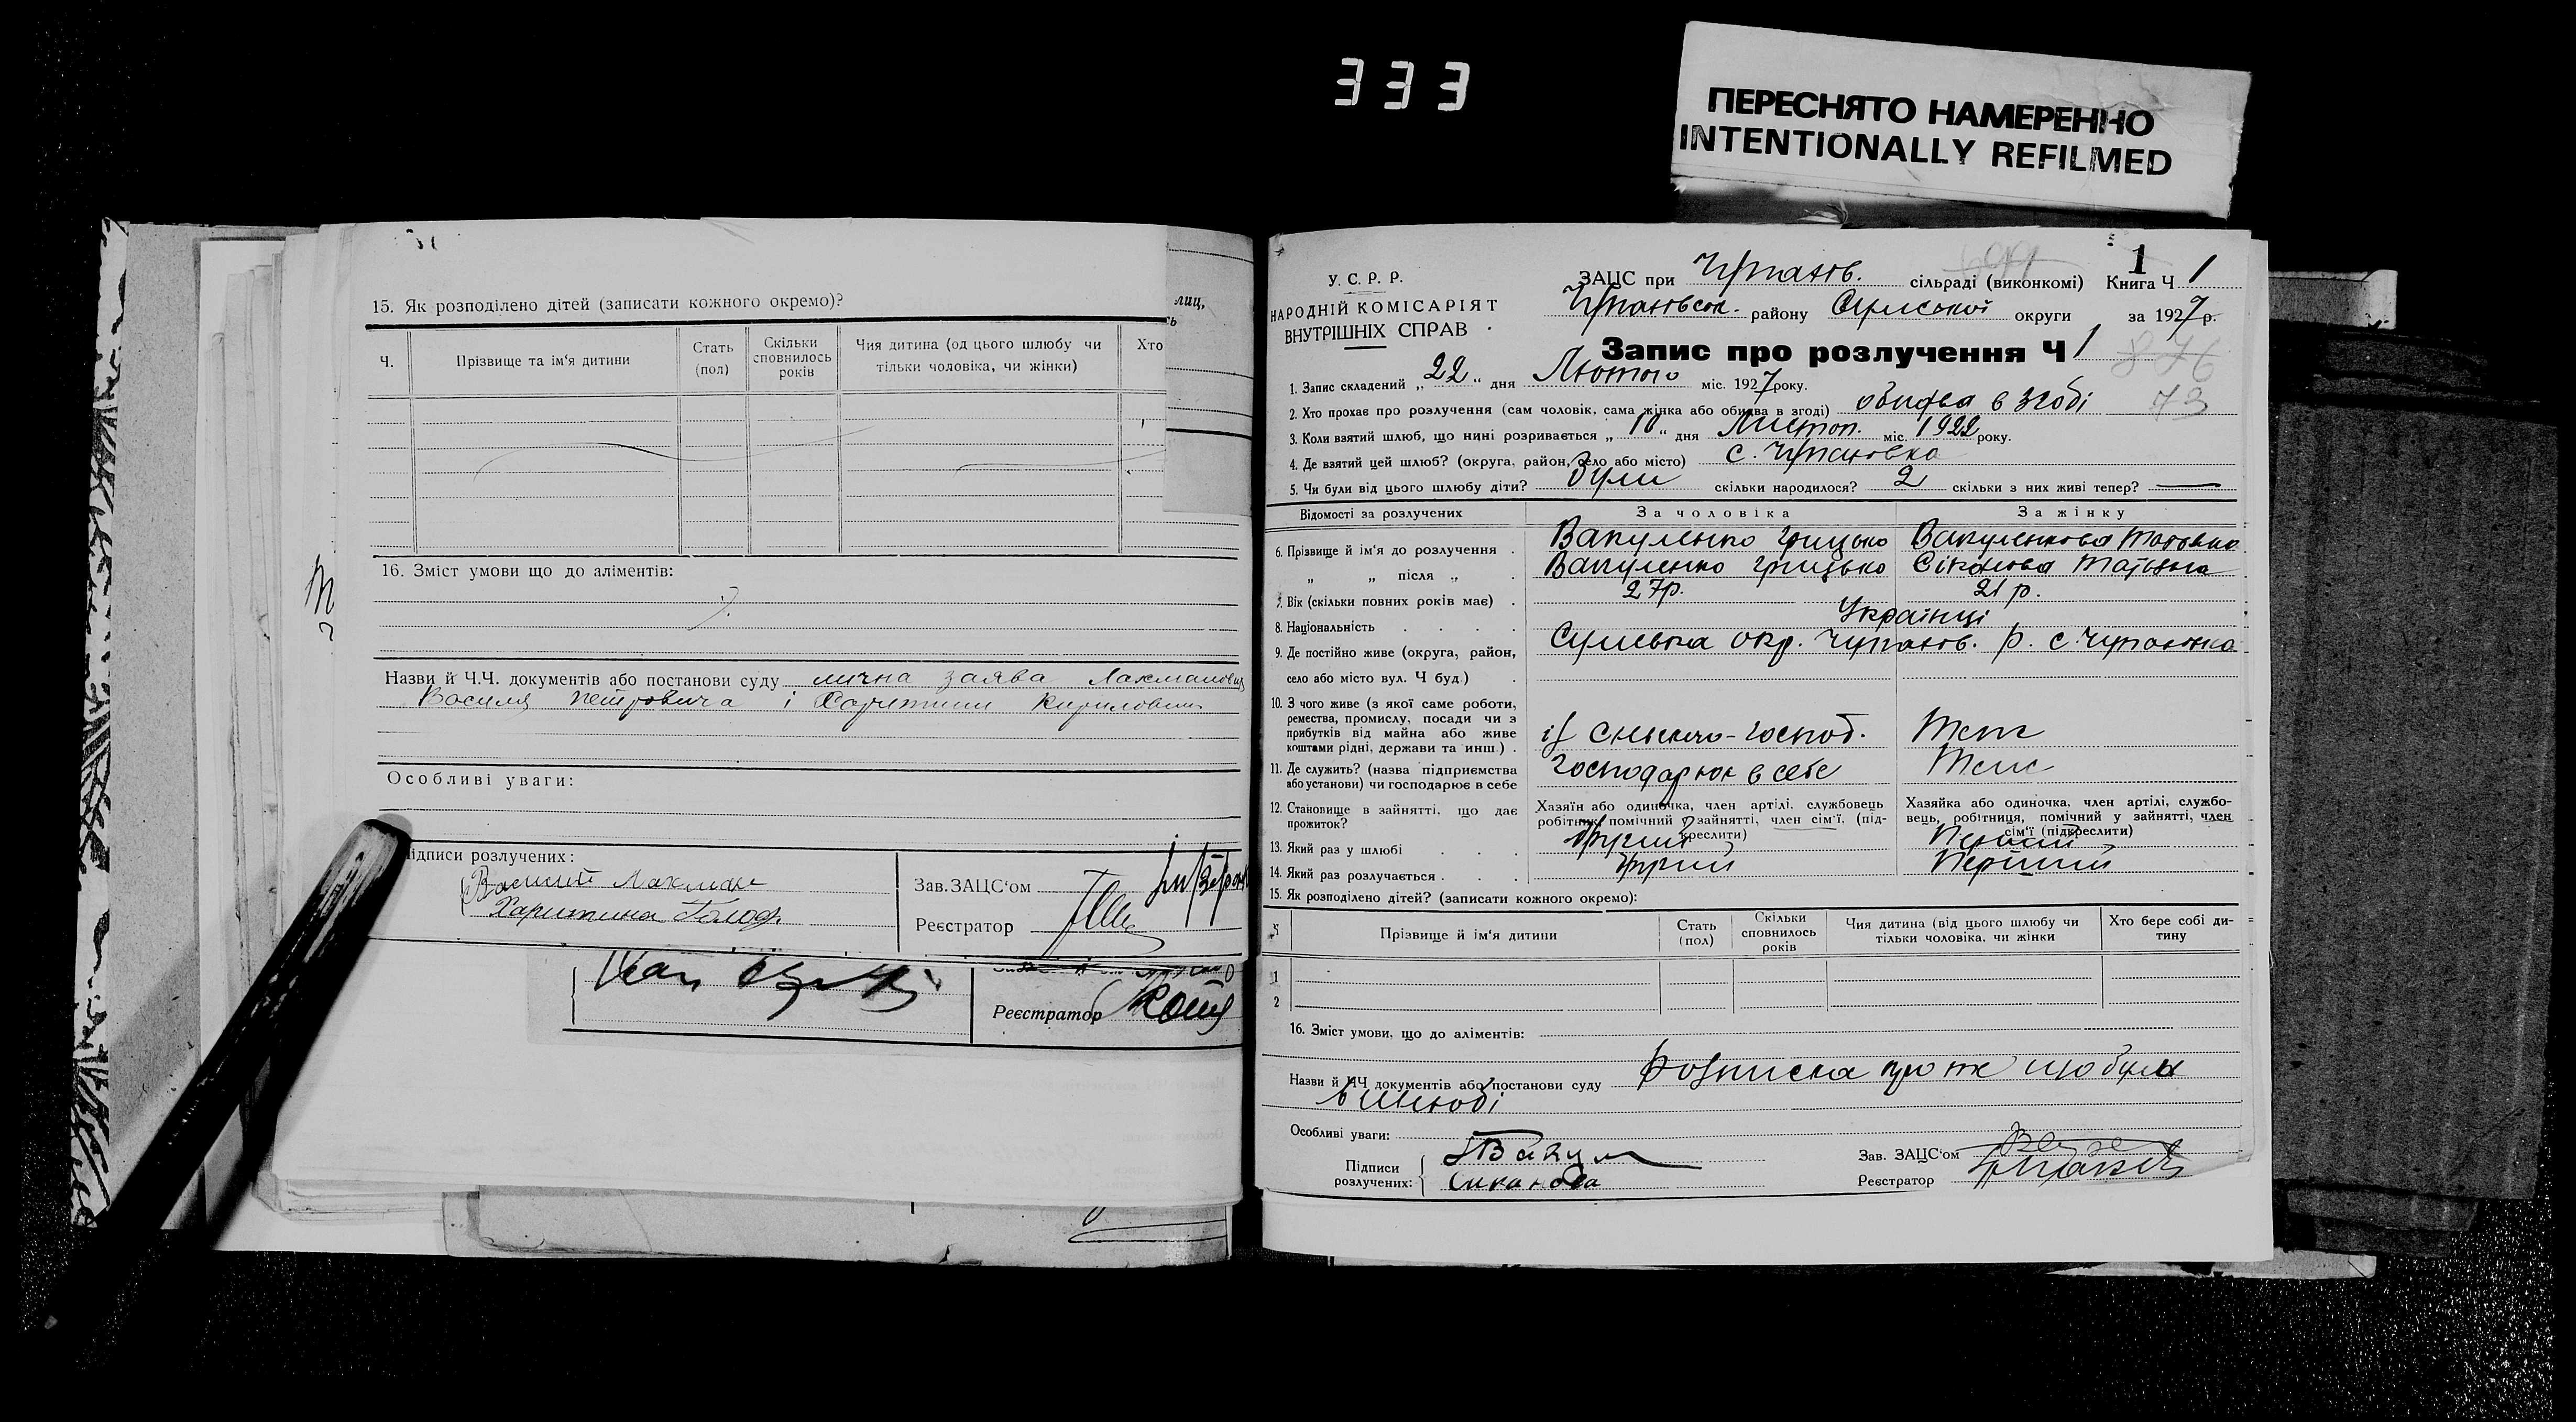 333
ПЕРЕСНЯТО НАМЕРЕННО
INTENTIONALLY REFILMED
лиц,
15. Як розподілено дітей (записати кожного окремо)?
Ч. Прізвище та ім'я дитини Стать (пол) Скільки сповнилось років Чия дитина (од цього шлюбу чи тільки чоловіка, чи жінки) Хто
16. Зміст умови що до аліментів:
Назви й Ч.Ч. документів або постанови суду лична заява
Василя Петровича і Кириловни
Особливі уваги:
ідписи розлучених:
Василий Лахман
Харитина Голод
Зав.ЗАЦС'ом
Реєстратор
Реєстратор
У.С.Р.Р.
НАРОДНІЙ КОМІСАРІЯТ
ВНУТРІШНІХ СПРАВ
ЗАЦС при Чупахів. сільраді (виконкомі) Книга Ч 1
1
Чупахівськ. району Сумської округи за 1927 р.
Запис про розлучення Ч 1
73
1. Запис складений „22" дня Лютого міс. 1927 року.
2. Хто прохає про розлучення (сам чоловік, сама жінка або обидва в згоді) обидва в згоді
3. Коли взятий шлюб, що нині розривається „10" дня Листоп. міс. 1922 року.
4. Де взятий цей шлюб? (округа, район, село або місто) с. Чупаховка
5. Чи були від цього шлюбу діти? Були скільки народилося? 2 скільки з них живі тепер? —
Відомості за розлучених За чоловіка За жінку
6. Прізвище й ім'я до розлучення . Вакуленко Грицько Вакуленкова Татьяна
„ „ після „ . Вакуленко Грицько Сіканова Татьяна
7. Вік (скільки повних років має) . 27р. 21 р.
8. Національність . . . . Українці
9. Де постійно живе (округа, район, село або місто вул. Ч буд.) . Сумська окр. Чупахів. р. с. Чупаховка
10. З чого живе (з якої саме роботи, ремества, промислу, посади чи з прибутків від майна або живе коштами рідні, держави та инш.) . із сільсько-господ.
11. Де служить? (назва підприємства або установи) чи господарює в себе господарює в себе
12. Становище в зайнятті, що дає прожиток? Хазяїн або одиночка, член артілі, службовець робітник, помічний у зайнятті, член сім'ї, (підкреслити) Хазяйка або одиночка, член артілі, службовець, робітниця, помічний у зайнятті, член сім'ї (підкреслити)
13. Який раз у шлюбі . . . Другий Первий
14. Який раз розлучається . . . Другий Перший
15. Як розподілено дітей? (записати кожного окремо):
Прізвище й ім'я дитини Стать (пол) Скільки сповнилось років Чия дитина (від цього шлюбу чи тільки чоловіка, чи жінки Хто бере собі дитину
1
2
16. Зміст умови, що до аліментів:
Назви й ЧЧ документів або постанови суду Розписка про те що були
в шлюбі
Особливі уваги:
Підписи розлучених: Вакул
Сиканова
Зав. ЗАЦС'ом
Реєстратор